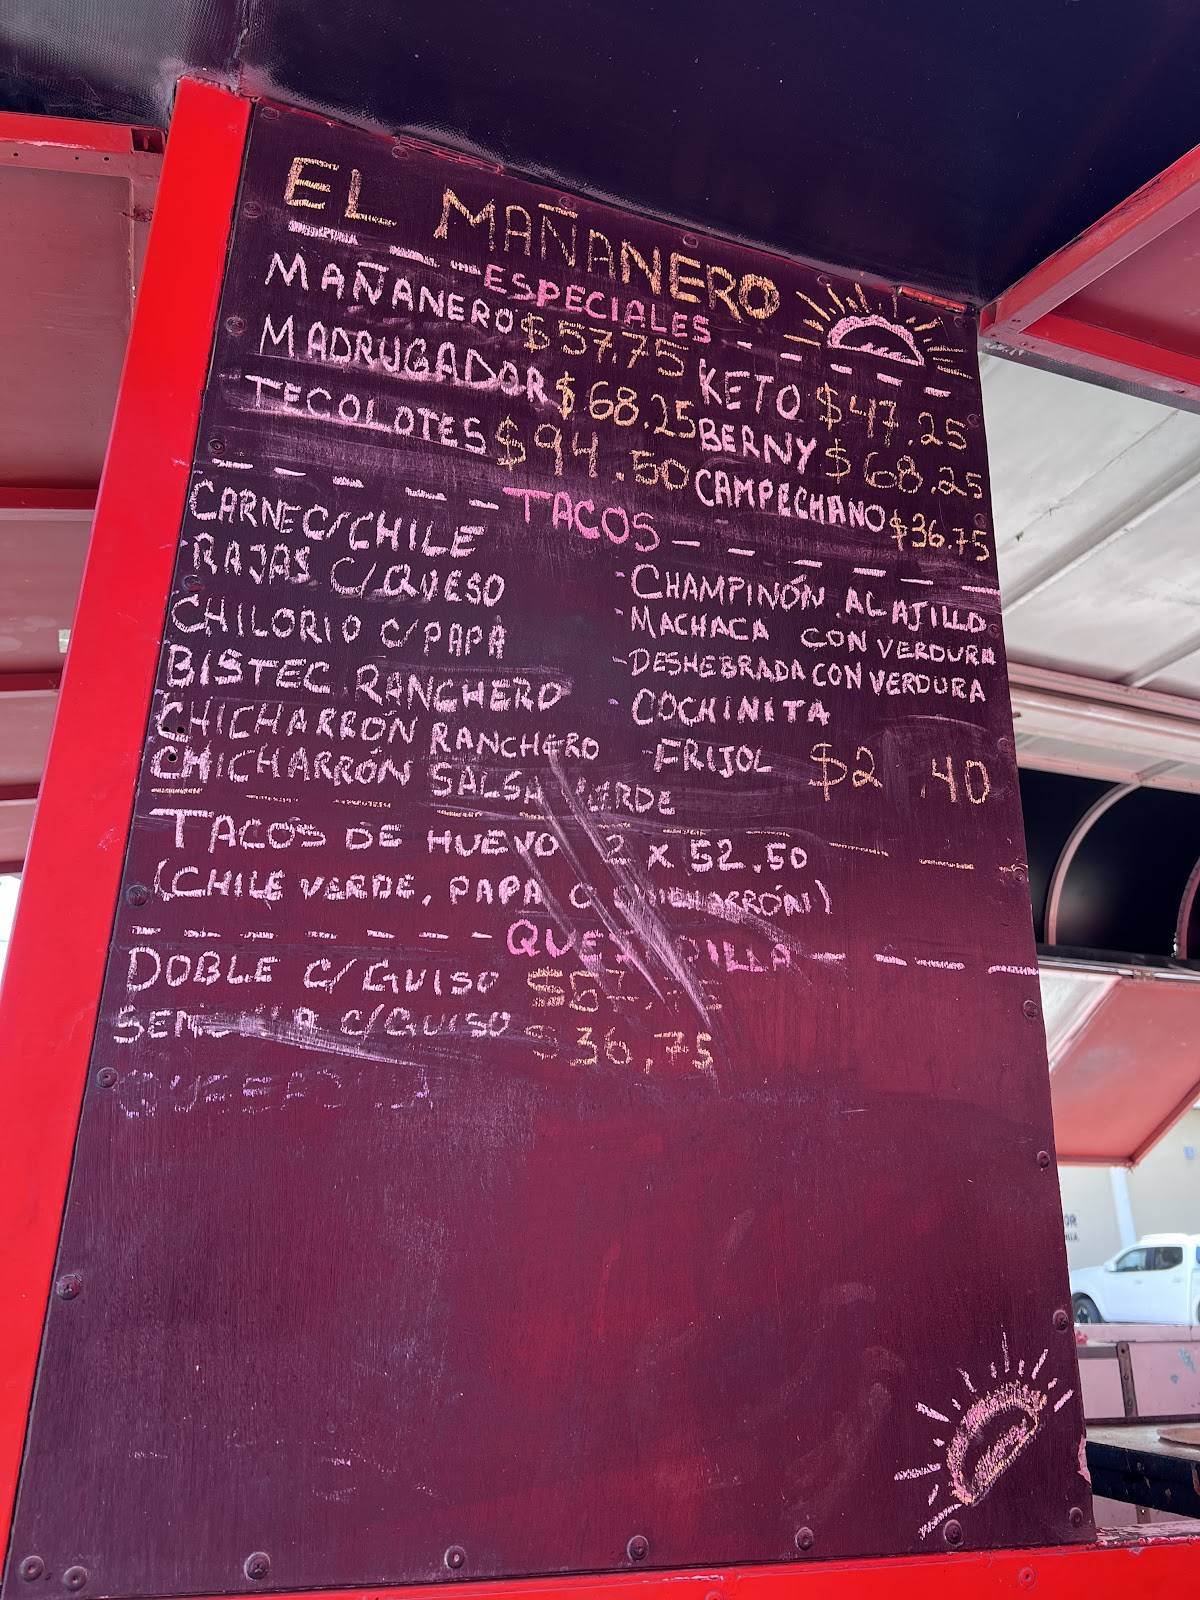 EL MAÑANERO
ESPECIALES
MAÑANERO $57.75
MADRUGADOR $68.25
TECOLOTES $94.50
KETO $47.25
BERNY $68.25
CAMPECHANO $36.75
TACOS
CARNE C/CHILE
-RAJAS C/QUESO
CHILORIO C/PAPA
BISTEC RANCHERO
CHICHARRÓN RANCHERO
CHICHARRÓN SALSA VERDE
-CHAMPIÑÓN AL AJILLO
-MACHACA CON VERDURA
-DESHEBRADA CON VERDURA
-COCHINITA
-FRIJOL
$2 .40
TACOS DE HUEVO 2 x 52.50
(CHILE VERDE, PAPA O CHICHARRÓN)
QUESADILLA
DOBLE C/GUISO
SENCILLA C/GUISO $36.75